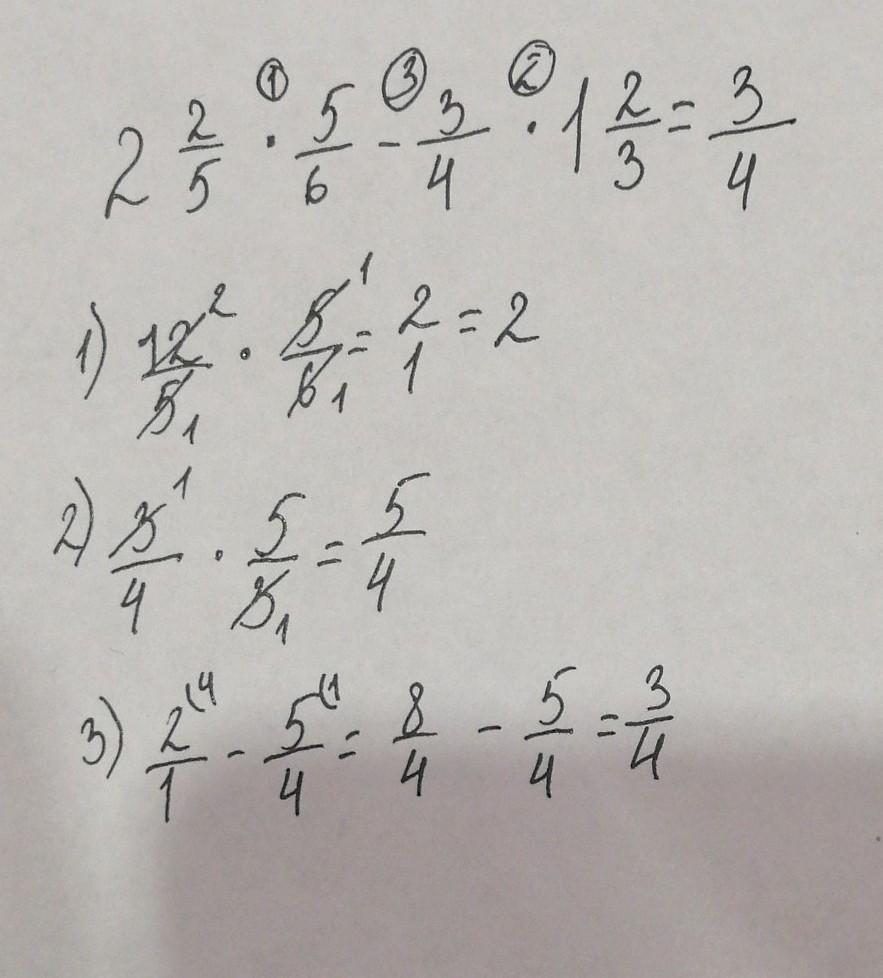 2 2/5 ·① 5/6 -③ 3/4 ·② 1 2/3 = 3/4
1) 12²/5₁ · 5¹/6₁ = 2/1 = 2
2) 3¹/4 · 5/3₁ = 5/4
3) 2⁽⁴/1 - 5⁽¹/4 = 8/4 - 5/4 = 3/4